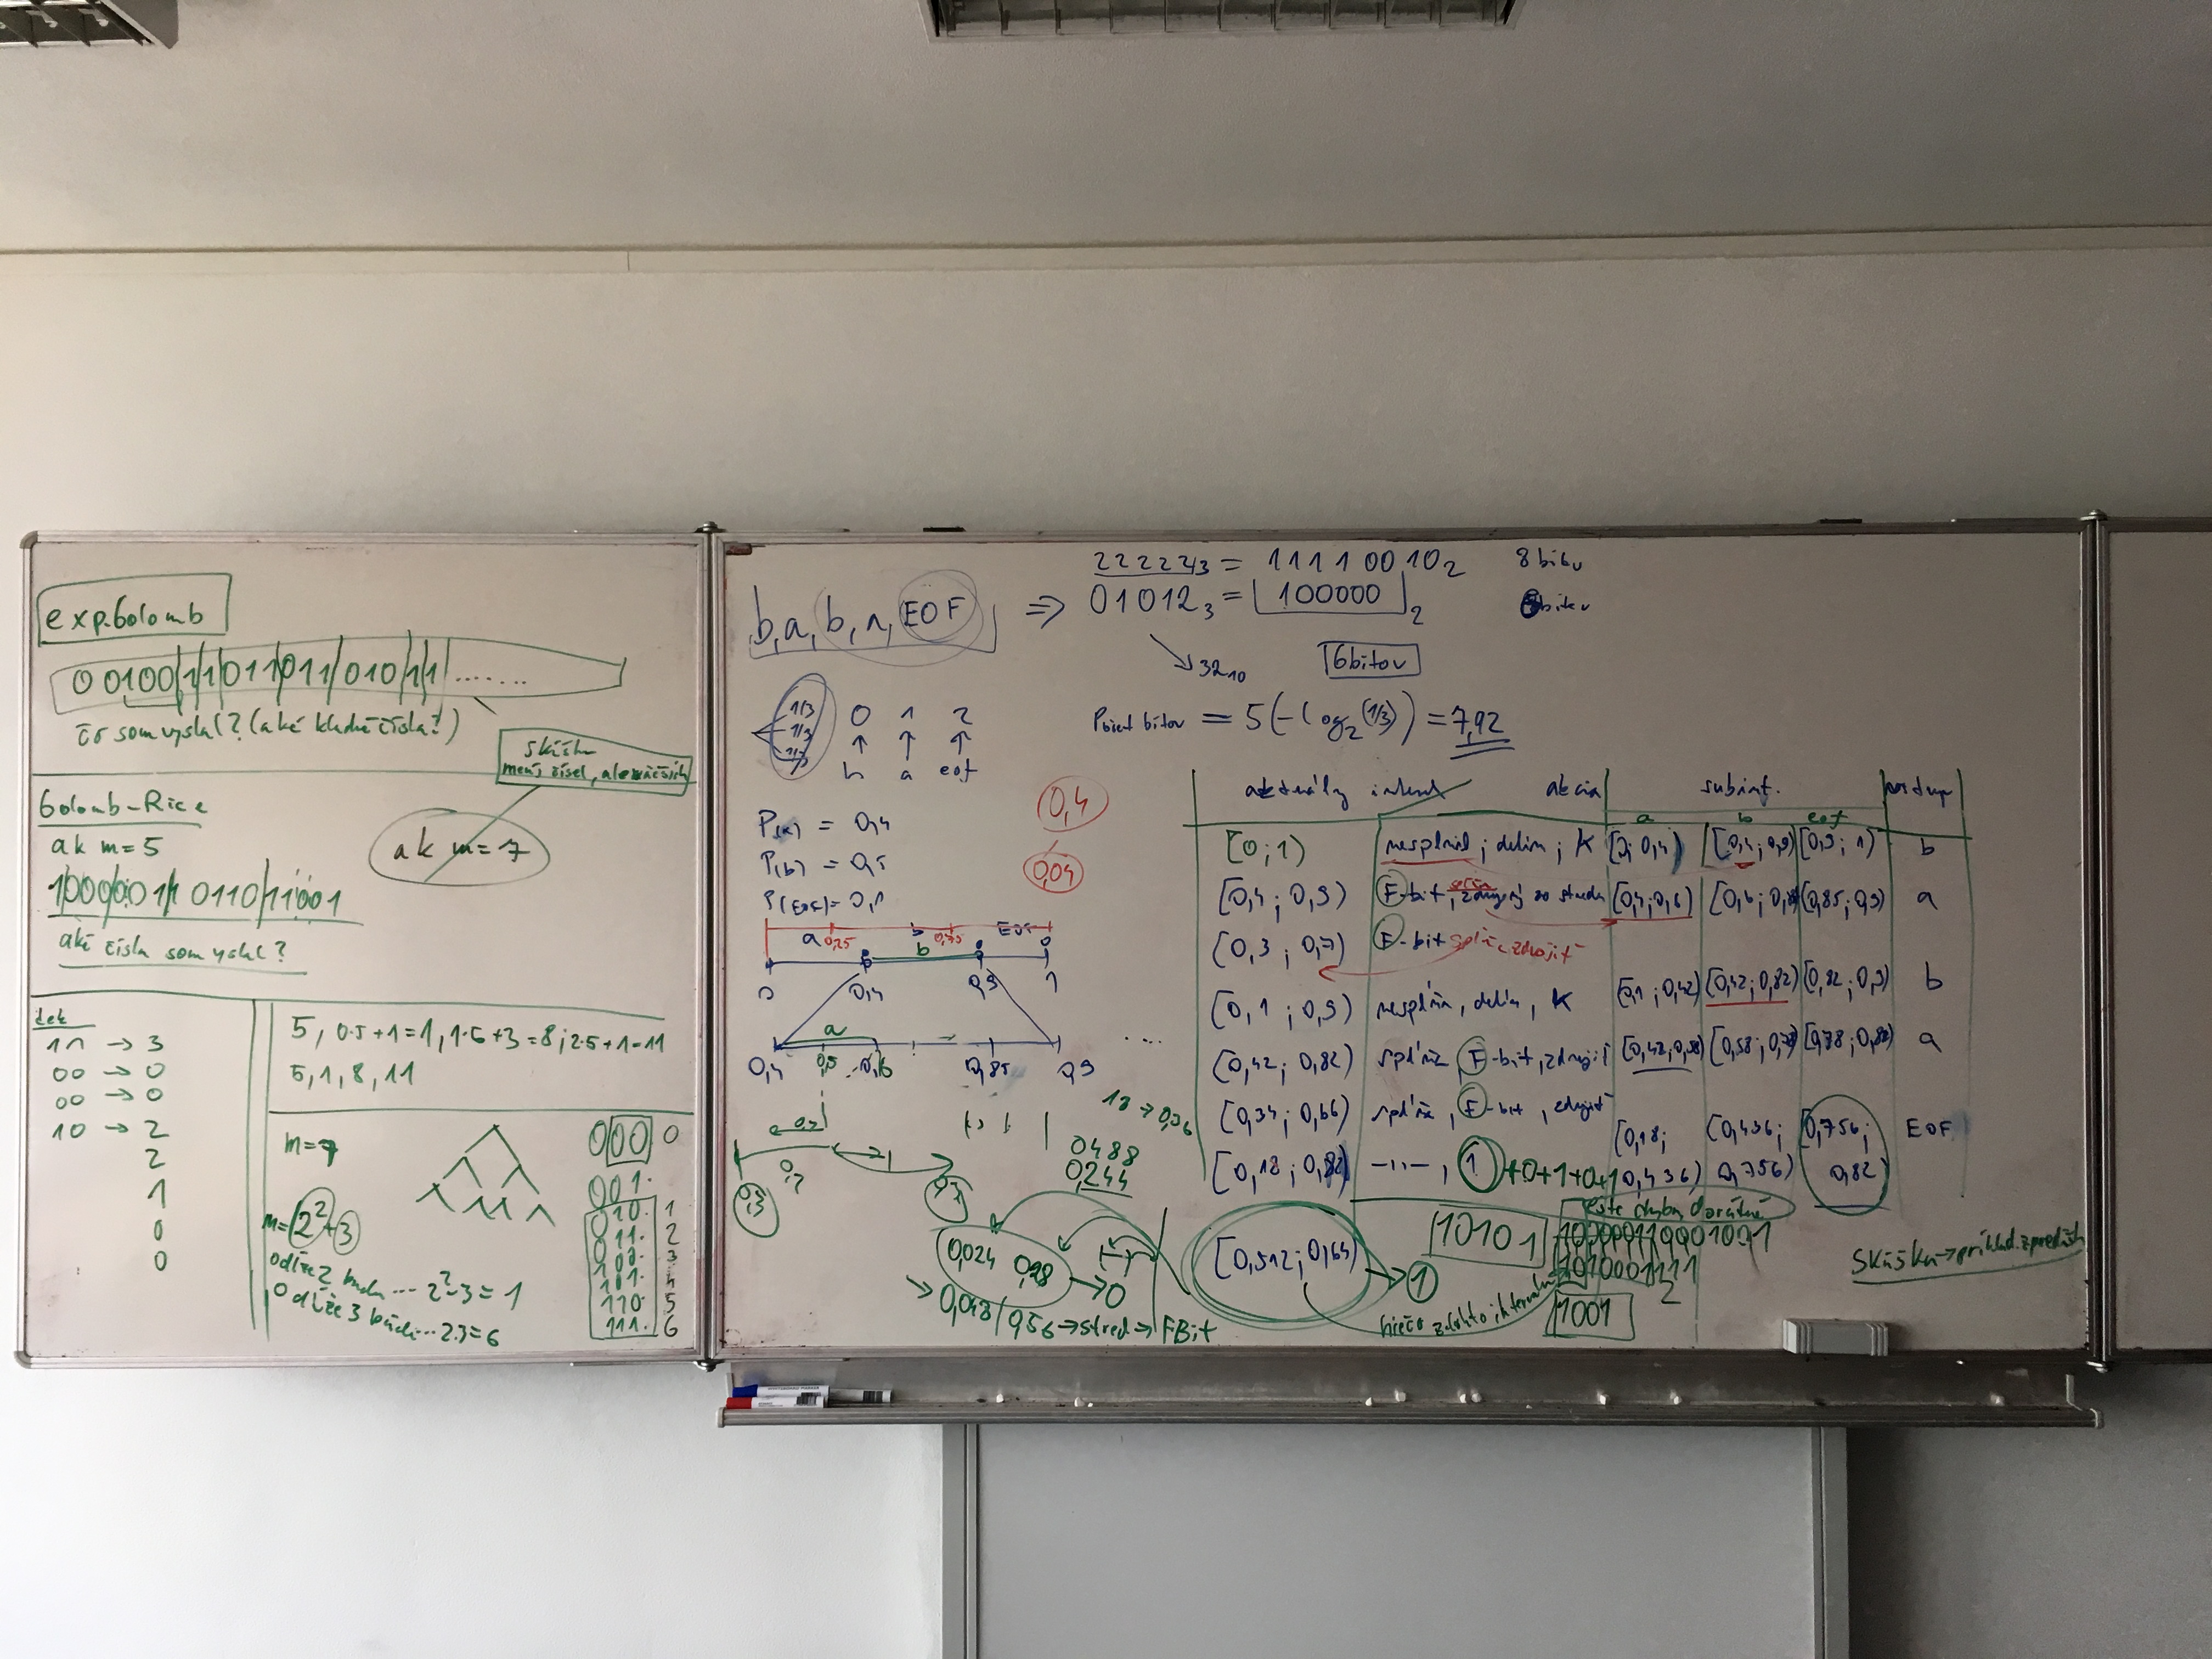 exp.Golomb
00100|1|1|011|011|010|1|1| .......
čo som vyslal? (aké kladné čísla?)
skúška
menej čísel, ale väčších
Golomb-Rice
ak m=5
ak m=7
aké čísla som vyslal?
dek
11 → 3
00 → 0
00 → 0
10 → 2
2
1
0
0
5, 0·5+1=1, 1·5+3=8; 2·5+1=11
5, 1, 8, 11
m=7
m=2²+3
odlže 2 budu ... 2²-3=1
odlže 3 budú ... 2·3=6
000 0
001.
010. 1
011. 2
100. 3
101. 4
110. 5
111. 6
b, a, b, a, EOF ⇒
22222₃ = 11110010₂ 8 bitov
01012₃ = 100000₂
32₁₀ 6 bitov
1/3 0 1 2
1/3 ↑ ↑ ↑
1/3 b a eof
Počet bitov = 5(-log₂(1/3)) = 7,92
P(a) = 0,4
P(b) = 0,5
P(EOF) = 0,1
0,4
0,04
a 0,25 0,75 EOF
b
0 0,4 0,9 1
a
0,4 0,5 0,6 0,85 0,9 ....
aktuálny interval akcia subint. postup
a b eof
[0 ; 1) nesplnil ; delim ; K [0; 0,4) [0,4 ; 0,9) [0,9 ; 1) b
[0,4 ; 0,9) F-bit, zdvojuj zo stredu [0,4 ; 0,6) [0,6 ; 0,85) [0,85 ; 0,9) a
[0,3 ; 0,7) F-bit splňa zdvojiť
[0,1 ; 0,9) nesplňa, delím, K [0,1 ; 0,42) [0,42 ; 0,82) [0,82 ; 0,9) b
[0,42 ; 0,82) splňa, F-bit, zdvojiť [0,42 ; 0,58) [0,58 ; 0,78) [0,78 ; 0,82) a
[0,34 ; 0,66) splňa, F-bit, zdvojiť
[0,18 ; 0,82) -"-, 1 +0+1+0+1 [0,18; 0,436) [0,436; 0,756) [0,756; 0,82) EOF
18 → 0,36
0488
0,244
0,2
0,3 0,7
0,024 0,28 → 0
→ 0,048 / 056 → stred → FBit
[0,512 ; 0,64) → 1
niečo z tohto intervalu
10101
1010001111
2
1001
Skúška → príklad z predáš